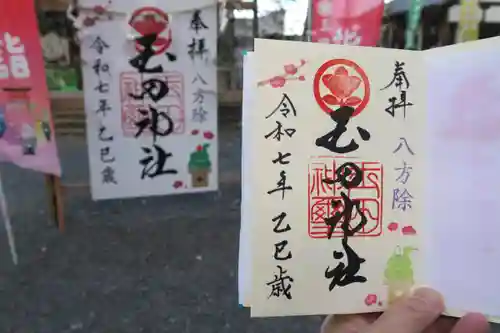 詣
奉拝 八方除
玉田神社
令和七年 乙巳歳
奉拝 八方除
玉田神社
令和七年 乙巳歳